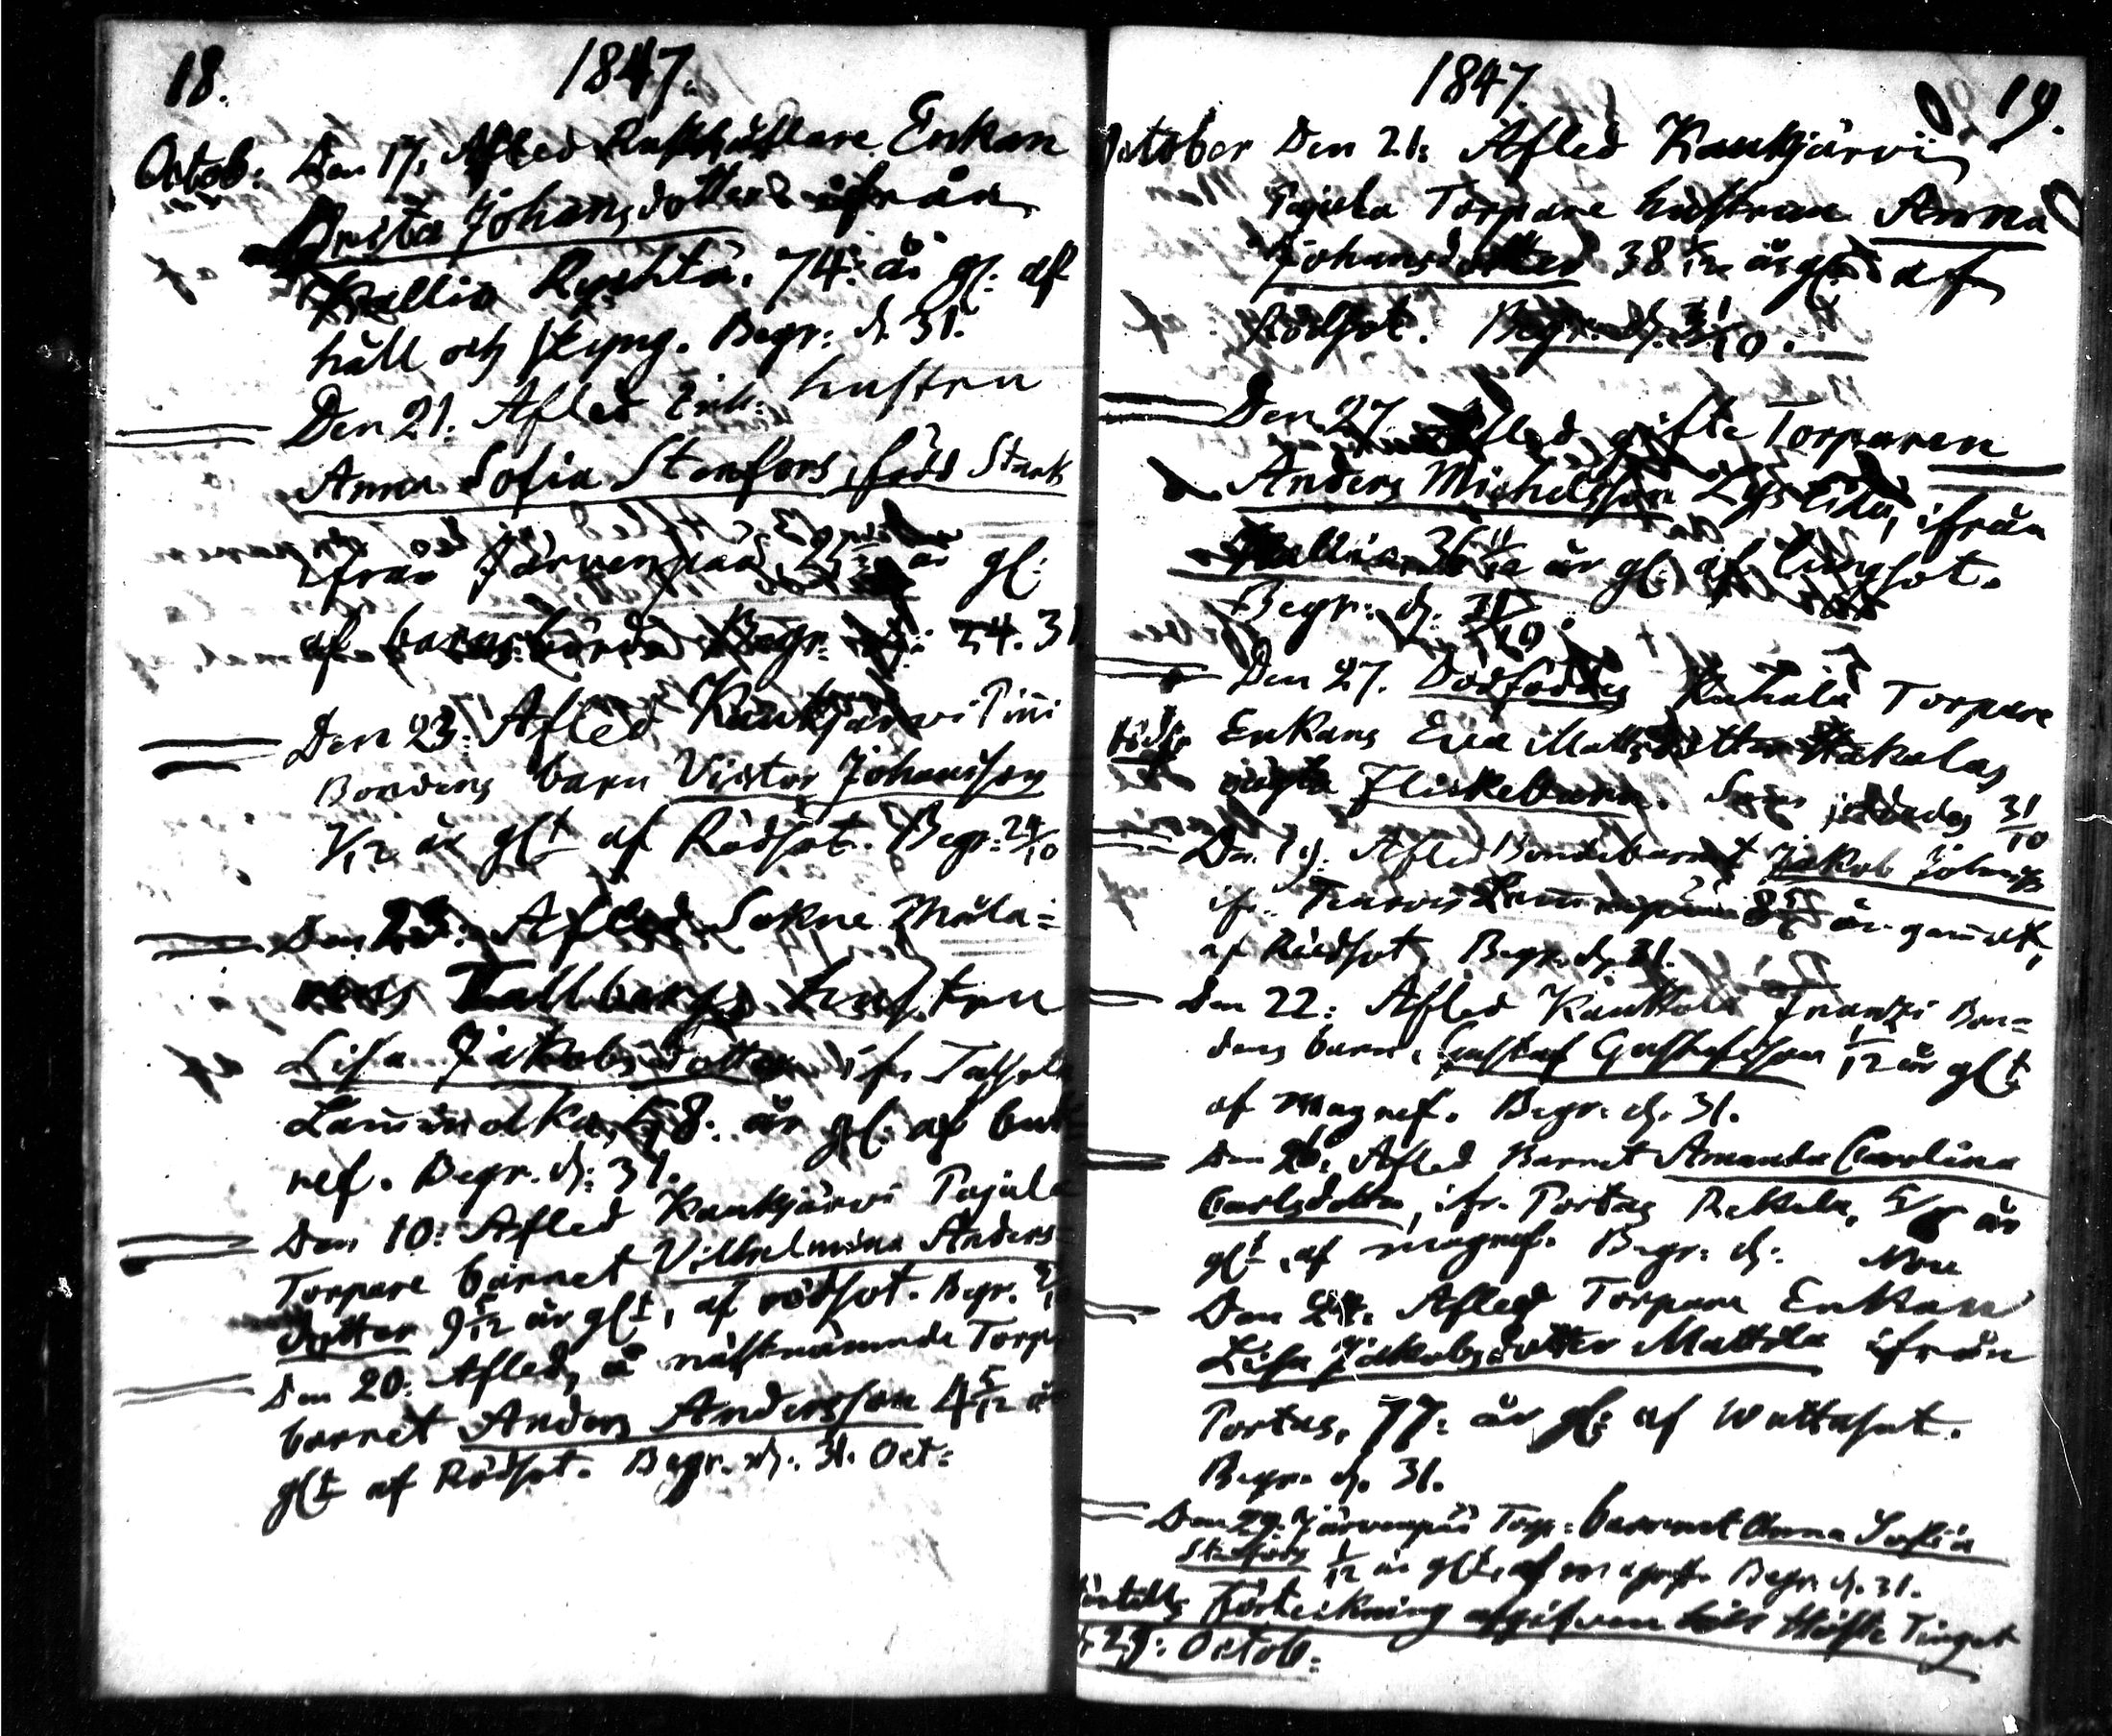 18.
1847.
Octob: Den 17. Afled Rusthållare Enkan
Brita Johansdotter ifrån
Kallio 74. år gl: af
håll och styng. Begr: d. 31.
Den 21. Afled Enk: hustru
Anna Sofia Stenfors, född Stark
ifrån Järvenpää, år gl:
af barnsbörd Begr. d: 31
Den 23: Afled Kaukjärvi Pini
Bondens barn Victor Johansson
7/12 år glt af Rödsot. Begr: 24/10
Den 23: Afled Sokne Måla=
rens Tallbergs hustru
Lisa Jakobsdotter ifr.
58. år gl: af
nef. Begr. d: 31.
Den 10: Afled Kaukjärvi Pajula
Torpare barnet Vilhelmina Anders
dotter 9 5/12 år glt, af rödsot. Begr.
Den 20: Afled, å nästnämnde Torp
barnet Anders Andersson 4 5/12 år
glt af Rödsot. Begr. d. 31. Oct:
1847
19.
October Den 21: Afled Kaukjärvi
Pajula Torpare hustrun Anna
Johansdotter 38 år gl: af
Rödsot. Begr. d. 31/10.
Den 27 Afled gifte Torparen
Anders Michelsson ifrån
Kallio 36 11/12 år gl: af lungsot.
Begr: d. 31/10.
Den 27. Dödföddes Torpare
Enkans Eva Mattsdotter Hakalas
oägta Flickebarn. Som jordades 31/10
Den 19. Afled Bondebarnet Jakob Johans
ifr. 8 år gamalt,
af Rödsot. Begr. d. 31.
Den 22: Afled Kaukola Frantzi Bon=
dens barn, Gustaf Gustafsson 1/12 år glt
af magref. Begr. d. 31.
Den 26. Afled Barnet Amanda Carolina
Carlsdotter, ifr. Portas Rekola, år
glt, af magref. Begr: d: Nov
Den Afled Torpare Enkan
Lisa Jakobsdotter Mattila ifrån
Portas, 77: år gl: af Wattusot.
Begr. d. 31.
Den 29. Järvenpää Torp: barnet Anna Sofia
Stenfors 1/12 år glt, af magref. Begr. d. 31.
Förteikning afgifven till Höste Tinget
d. 29: Octob: